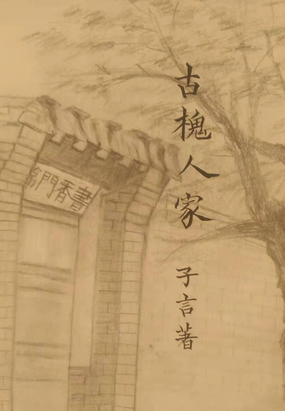 古槐人家
子言著
書香門第